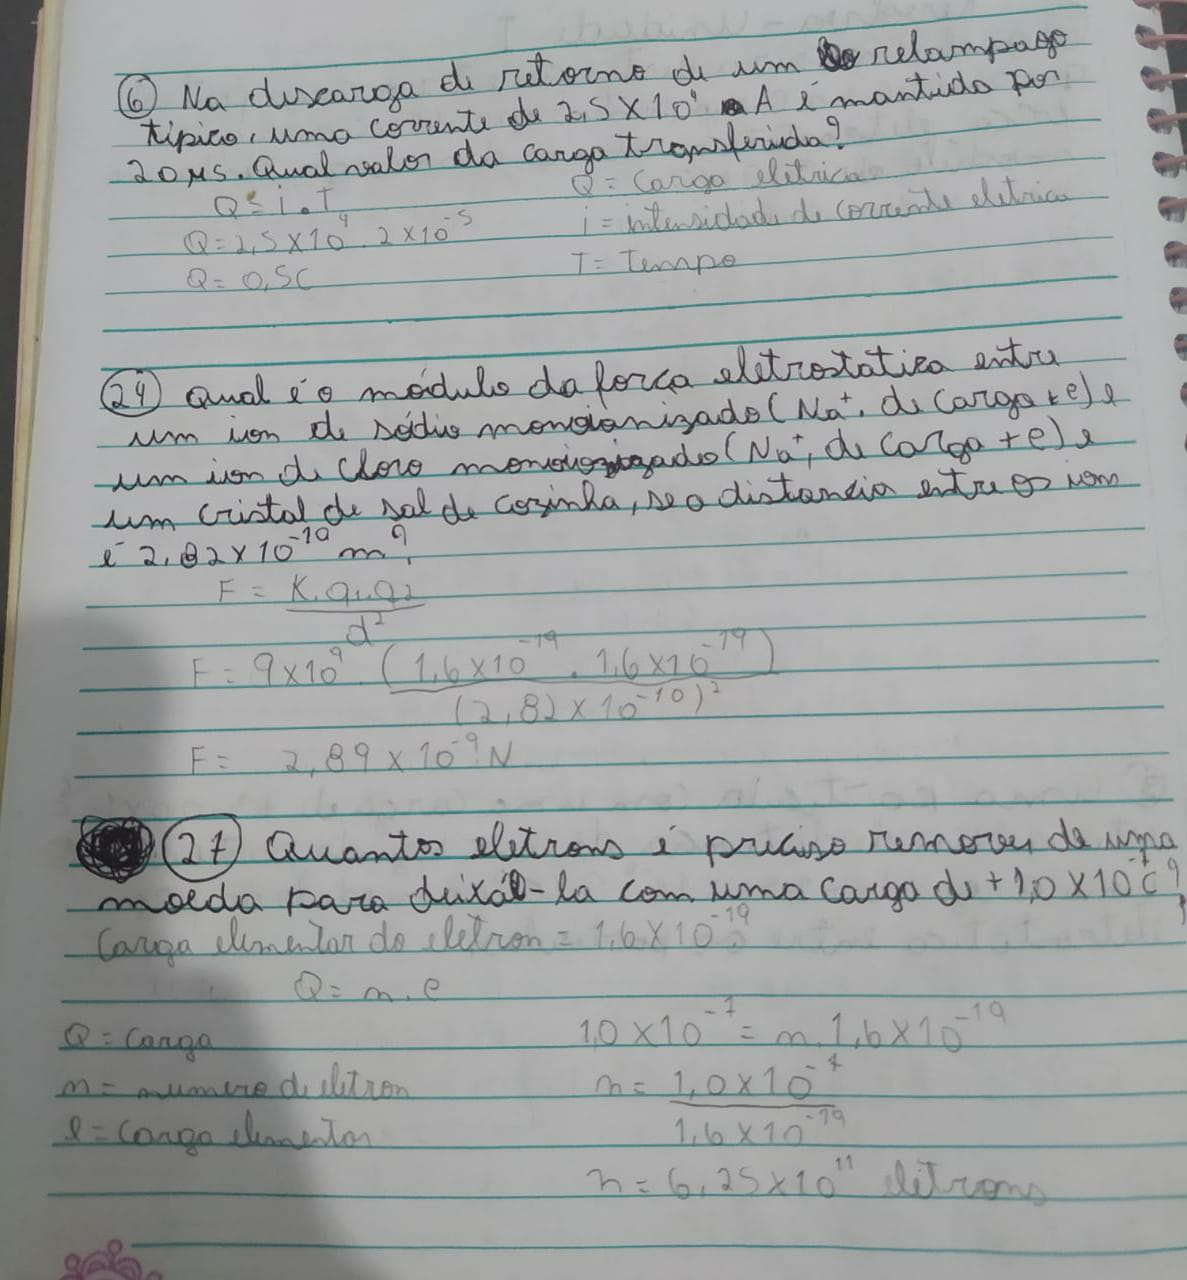 6 Na discarga de retorno de um relampago
típico, uma corrente de 2,5 x 10⁴ A é mantida por
20 μs. Qual valor da carga transferida?
Q = i . T
Q = Carga eletrica
Q = 2,5 x 10⁴ . 2 x 10⁻⁵
i = intensidade de corrente eletrica
Q = 0,5C
T = Tempo
24 Qual é o módulo da força eletrostatica entre
um ion de sódio monoionizado (Na⁺, de carga +e) e
um ion de cloro monoionizado (Na⁺, de carga +e) e
um cristal de sal de cozinha, se a distancia entre os ions
é 2,82 x 10⁻¹⁰ m?
F = K.q1.q2
d²
F = 9 x 10⁹ . (1,6 x 10⁻¹⁹ . 1,6 x 10⁻¹⁹)
(2,82 x 10⁻¹⁰)²
F = 2,89 x 10⁻⁹ N
27 Quantos eletrons é preciso remover de uma
moeda para deixá-la com uma carga de +1,0 x 10⁻⁷ C?
Carga elementar do eletron = 1,6 x 10⁻¹⁹
Q = n . e
Q = carga
1,0 x 10⁻⁷ = n . 1,6 x 10⁻¹⁹
n = numero de eletron
n = 1,0 x 10⁻⁷
e = carga elementar
1,6 x 10⁻¹⁹
n = 6,25 x 10¹¹ eletrons